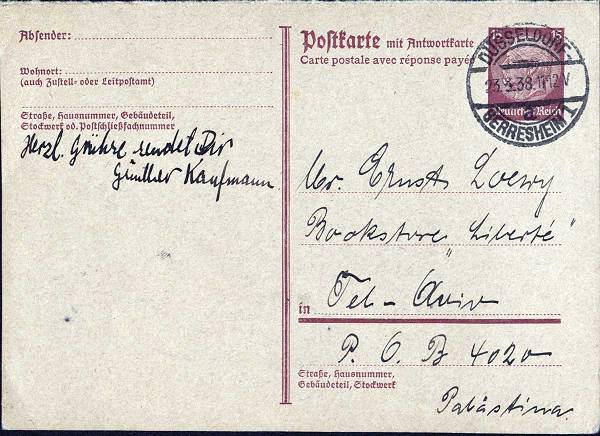 Absender:
Wohnort:
(auch Zustell- oder Leitpostamt)
Straße, Hausnummer, Gebäudeteil,
Stockwerk od. Postschließfachnummer
Herzl. Grüße sendet Dir
Günther Kaufmann.
Postkarte mit Antwortkarte
Carte postale avec réponse payée
DÜSSELDORF-
23.3.38.11-12 V
GERRESHEIM 1
Deutsches Reich
Mr. Ernst Loewy
Bookstore "Liberté"
in Tel-Aviv
P. O. B 4020
Straße, Hausnummer,
Gebäudeteil, Stockwerk
Palästina.